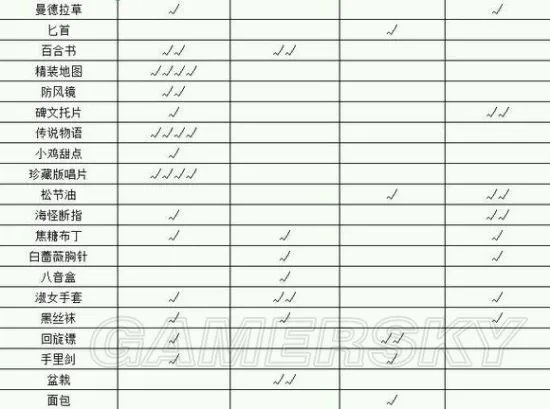 曼德拉草 √ √
匕首 √
百合书 √√ √√
精装地图 √√√√
防风镜 √√
碑文托片 √ √√
传说物语 √√√√
小鸡甜点 √
珍藏版唱片 √√√√
松节油 √ √√
海怪断指 √ √√
焦糖布丁 √ √ √
白蔷薇胸针 √ √
八音盒 √
淑女手套 √ √√ √
黑丝袜 √ √ √
回旋镖 √ √√
手里剑 √ √
盆栽 √√
面包 √
GAMERSKY